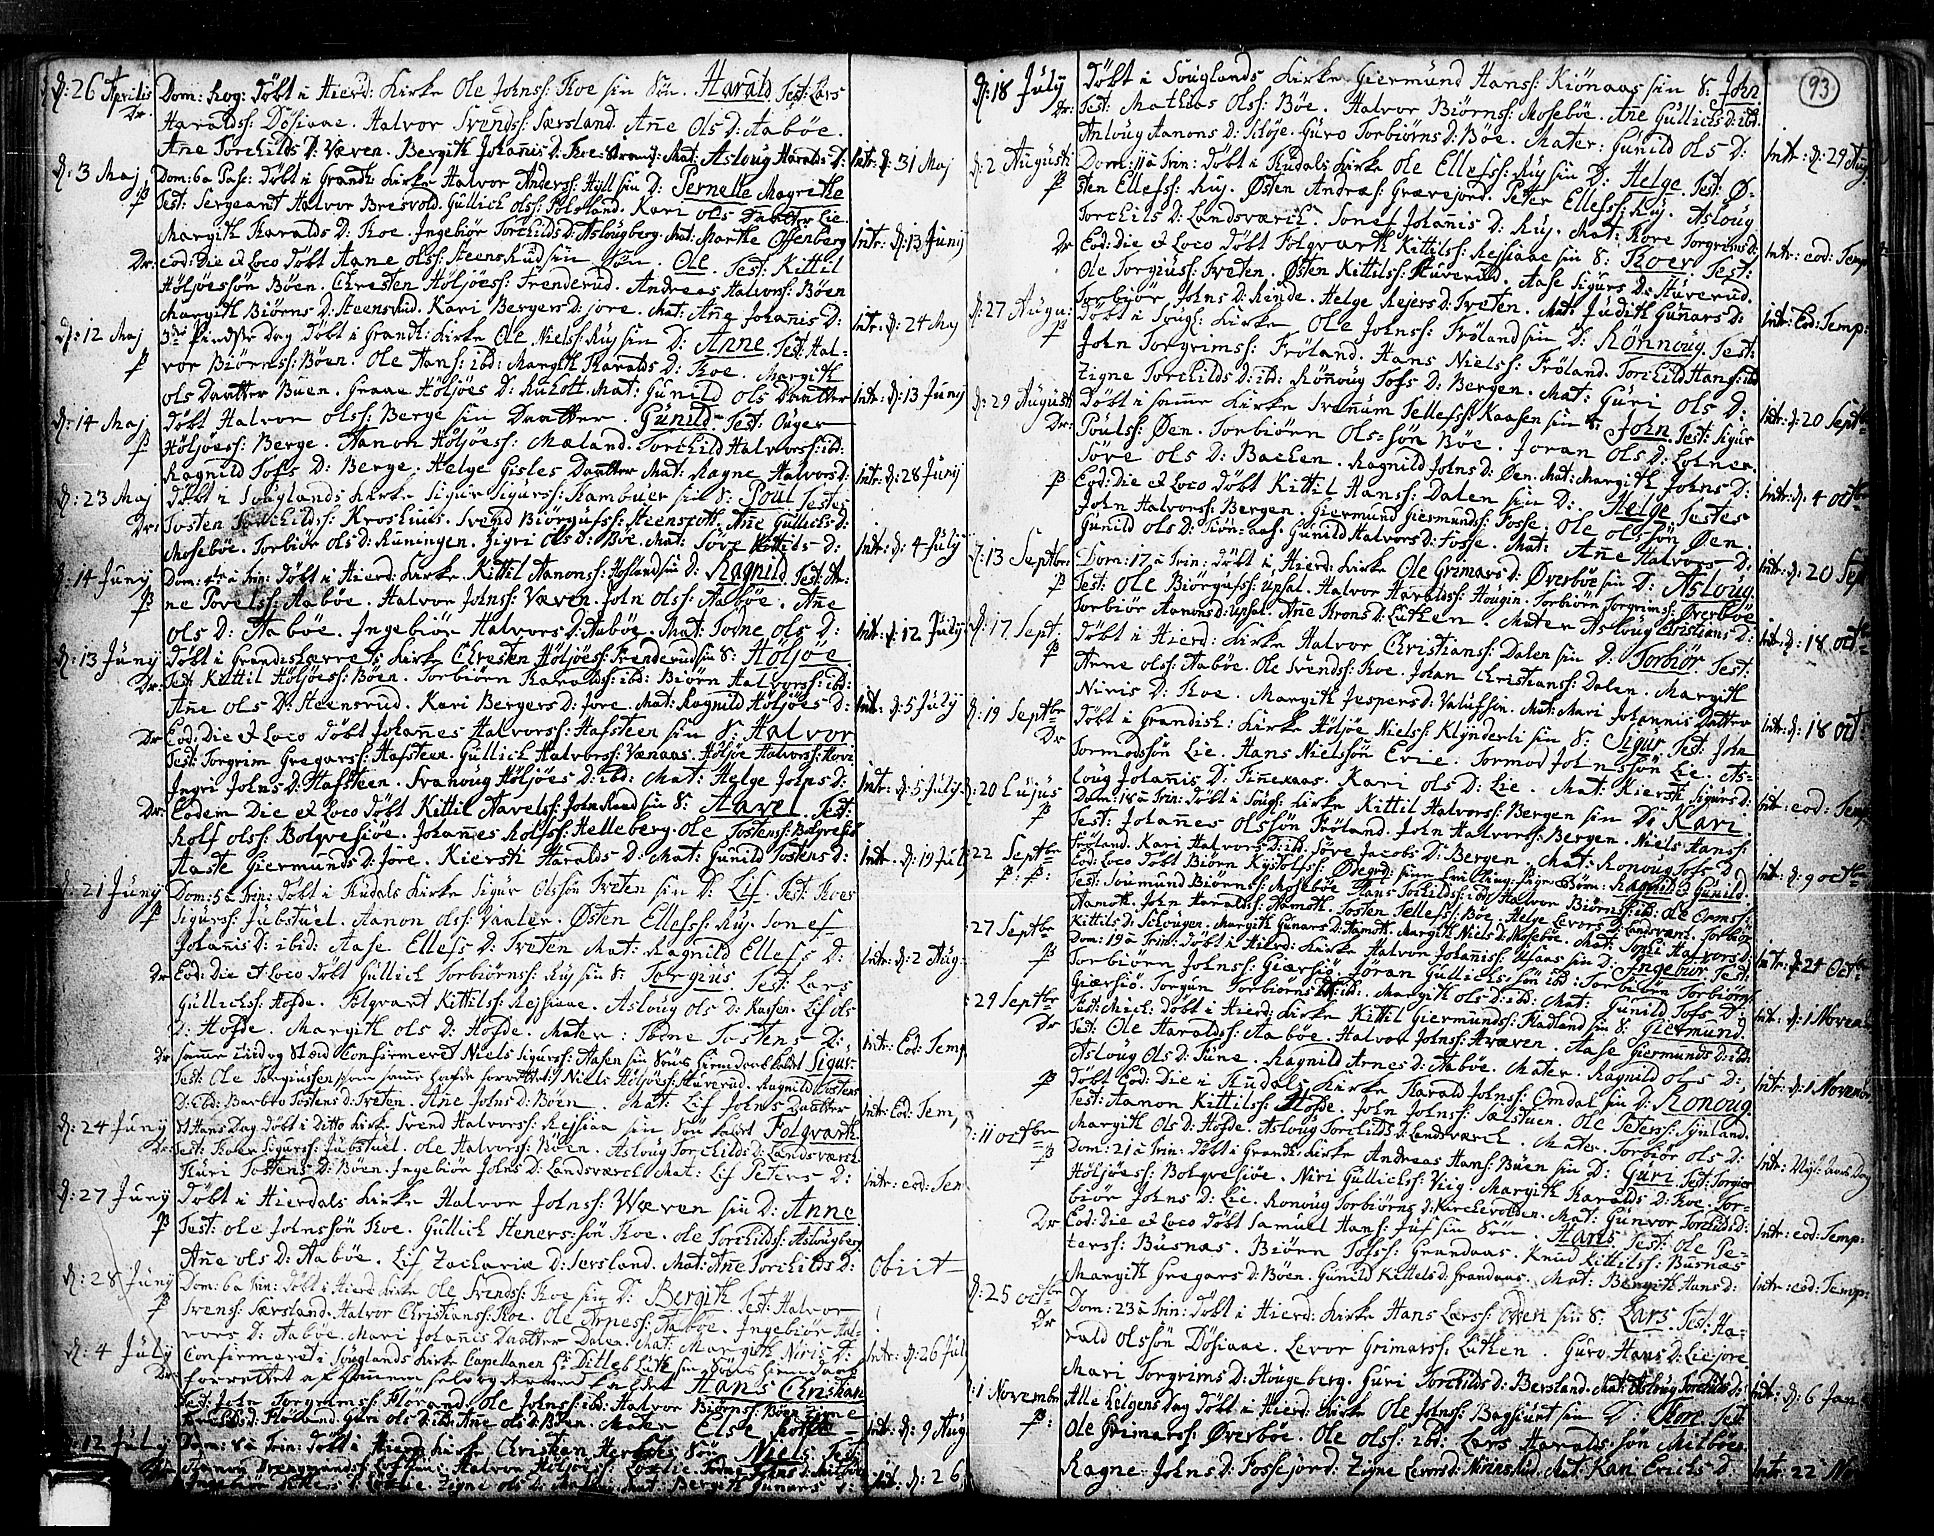 93
d: 26 Aprilis Dom: Rog: döbt i Hierd: Kirke Ole Johnss: Koe sin Sön. Harald. Test: Lars
Dr. Haraldss: Dösiaae. Halvor Svendss: Særsland. Ane Ols D: Aaböe.
Ane Torchilds D: Væren. Bergith Johanis D: Mat: Asloug Haralds D: Intr: d: 31 Maj
d: 3 Maj Dom: 6a Pas: döbt i Grandt: Kirke Halvor Anderss: Hyll sin D: Pernelle Magrethe
Test: Sergeant Halvor Bresvold. Gullich Olss: Kari Ols Daatter Lie.
Margith Haralds D: Koe. Ingebiör Torchilds D: Aslougberg. Mat: Marthe Offenberg Intr: d: 13 Juny
Dr. eod: Die et Loco döbt Aane Olss: Steensrud sin Sön. Ole. Test: Kittil
Höljöessön Böen. Christen Höljöess: Frenderud. Andreas Halvorss: Böen
Margith Biörns D: Steensrud. Kari Bergers D: Jore. Mat: Ane Johanis D: Intr: d: 24 Maj
d: 12 Maj 3die Pindse Dag döbt i Grandt: Kirke Ole Nielss: Ruy sin D: Anne. Test: Hal-
vor Biörnss: Böen. Ole Hans: ibd: Margith Haralds D: Koe. Margith
Ols Daatter Büen. Graae Höljöes D: Mat: Gunild Ols Daatter Intr: d: 13 Juny
d: 14 Maj döbt Halvor Olss: Berge sin Daatter. Gunild. Test: Ouger
Höljöess: Berge. Aanon Höljöess: Mæland. Torchild Halvorss: ibd:
Ragnild Tofs D: Berge. Helge Gisles Daatter Mat: Ragne Halvors D: Intr: d: 28 Juny
d: 23 Maj döbt i Souglands Kirke Sigur Sigurss: Kambuer sin S: Poul Testes
Dr. Tosten Torchildss: Svend Biörgufss: Steenstoft. Ane Gullichs D:
Moseböe. Torbiör Ols D: Runingen. Zigri Ols D: Böe. Mat: Söve Kittils D: Intr: d: 4 July
d: 14 Juny Dom: 4ta a Trin: döbt i Hierd: Kirke Kittil Aanonss: Hofland sin D: Ragnild Test: Ar-
ne Povelss: Aaböe. Halvor Johnss: Væren. John Olss: Aaböe. Ane
Ols D: Aaböe. Ingebiör Halvors D: Aaböe. Mat: Tone Ols D: Intr: d: 12 July
d: 13 Juny Döbt i Grandiskerre s: Kirke Christen Höljöess: Frenderud sin S: Höljöe.
Dr: Test: Kittil Höljöess: Böen. Torbiörn Haraldss: ibd: Biörn Halvorss: ibd:
Ane Ols D: Steensrud. Kari Bergers D: Jore. Mat: Ragnild Höljöes D: Intr: d: 5 July
Dr Eod: Die et Loco döbt Johanes Halvorss: Hafsteen sin S: Halvor
Test: Torgrim Gregarss: Hafsteen. Gullich Halvorss: Vænaas. Höljöe Halvorss: Hovi
Ingri Johns D: Hafsteen. Svanoug Höljöes D: ibd: Mat: Helge Johns D: Intr: d: 5 July
Dr: Eodem Die et Loco döbt Kittil Aavelss: sin S: Aavel. Test:
Rolf Olss: Bolqvesjöe. Johanes Rolfss: Helleberg. Ole Tostenss: Bolqvesiö
Aaste Giermunds D: Jore. Kiersti Haralds D: Mat: Gunild Tostens D: Intr. d: 19 July
d: 21 Juny Dom: 5 a Trin: döbt i Hudals Kirke Sigur Olssön Tveten sin D: Lif. Test: Koes
Sigurss: Jubstuel. Aanon Olss: Vaaler. Östen Ellefss: Ruy. Tonef
Johanis D: ibid: Aase Ellefs D: Tveten Mat: Ragnild Ellefs D: Intr: d: 2 Aug:
Dr Eod: Die et Loco döbt Gullich Torbiörnss: Ruy sin S: Torgius. Test: Lars
Gullichss: Hofde. Folqvart Kittilss: Rejsiaae. Asloug Ols D: Kaasen. Lif Ols
D: Hofde. Margith Ols D: Hofde. Mater: Tone Tostens D: Intr: Eod: Temp
Dr samme Tid og Stæd Confirmeret Niels Sigurss: Aasen sin Söns hiemedaab kaldet Sigur.
Test: Ole Torgiussen som samme hafde forrettet. Niels Höljöess: Stuverud. Ragnild Tostens
D: ibd: Barbro Tostens D: Tveten. Ane Johns D: Böen. Mat: Lif Johns Daatter Intr: Eod: Tem,
d: 24 Juny St Hans Dag döbt i ditto Kirke Svend Halvorss: Rejsiaa sin Sön kaldet Folqvarth
Dr: Test: Koes Sigurss: Jubstuel. Ole Halvorss: Böen. Asloug Torchilds D: Landsværch.
Guri Tostens D: Böen. Ingebiör Johns D: Landsværch Mat: Lif Peters D: Intr: eod: Tem
d: 27 Juny döbt i Hierdals Kirke Halvor Johnss: Wæren sin D: Anne.
Test: Ole Johnssön Koe. Gullich Heners-sön Koe. Ole Torchildss: Aslougberg
Ane Ols D: Aaböe. Lif Zachariæ D: Sersland. Mat: Ane Torchilds D: Obiit
d: 28 Juny Dom: 6 a Trin: döbt i Hierd: Kirke Ole Svendss: Koe sin D: Bergith. Test: Halvor
Svenss: Særsland. Halvor Christianss: Koe. Ole Arness: Aaböe. Ingebiör Hal-
vors D: Aaböe. Mari Johanis Daatter Dalen. Mat: Margith Niris D: Intr: d: 26 Jul
d: 4 July Confirmeret i Souglands Kirke Capellanen Hr: Ditlef sin Söns hiemedaab
Dr: forrettet af ham selv og dermed kaldet Hans Christian
Test: John Torgrimss: Flörand. Ole Johnss: ibd: Halvor Biörnss: Böen
Guri Ols D: ibd: Ane Ols D: Böen. Mater Else Intr: d: 9 Aug
d: 12 July Dom: 8 a Trin: döbt i Hierd: Kirke Christian Sön Niels. Test:
Halvor Höljöess: Tone Johns D:
Zigne Ols D: Mat: Bergith Gunars D: Int: d: 26
d: 18 July döbt i Souglands Kirke Giermund Hanss: Kiönaas sin S. John
Dr: Test: Mathias Olss: Böe. Halvor Biörnss: Moseböe. Ane Gullichs D: ibd.
Anloug Aanons D: Schöje. Guro Torbiörns D: Böe. Mater: Gunild Ols D: Intr: d: 29 Aug:
d: 2 Augusti Dom: 11 a Trin: döbt i Hudals Kirke Ole Ellefss: Ruy sin D: Helge. Test: Ö-
sten Ellefss: Ruy. Östen Andræs: Grævejord. Peter Ellefss: Ruy. Asloug
Torchils D: Landsværch. Tonef Johanis D: Ruy. Mat: Kore Torgrims D: Intr: eod: Temp
Dr Eod: die et Loco döbt Folqvarth Kittilss: Rejsiaae sin S: Koer. Test:
Ole Torgiuss: Tveten. Östen Kittilss: Stuverud. Aase Sigurs D: Stuverud.
Torbiör Johns D: Rende. Helge Rejers D: Tveten. Mat: Judith Gunars D: Intr: Eod: Temp:
d: 27 Augu: döbt i Sougl: Kirke Ole Johnss: Fröland sin D: Rönnoug. Test:
John Torgrimss: Fröland. Hans Nielss: Fröland. Torchild Hanss: ibd
Zigne Torchilds D: ibd: Rönoug Tofs D: Bergen. Mat: Guri Ols D: Intr: d: 20 Septbr
d: 29 Augusti döbt i samme Kirke Svenum Tellefss: Kaasen sin S: John. Test: Sigur
Dr: Poulss: Öen. Torbiörn Ols-sön Böe. Joran Ols D: Lofner.
Söve Ols D: Bachen. Ragnild Johns D: Öen. Mat: Margith Johns D: Intr: d: 4 octbr
Eod: Die et Loco döbt Kittil Hanss: Dalen sin D: Helge Testes
John Halvorss: Bergen. Giermund Giermundss: Fosse. Ole Olssön Öen.
Gunild Ols D: Gunild Halvors D: Fosse. Mat: Ane Halvors D: Intr: d: 20 Sept
d: 13 Septbr Dom: 17 a Trin: döbt i Hierd: Kirke Ole Grimars D: Överböe sin D: Asloug.
Test: Ole Biörgufss: Upsal. Halvor Haraldss: Hougin. Torbiörn Torgrimss: Överböe
Torbiör Aanons D: Upsal. Ane Arons D: Luthen. Mater Asloug Christians D: Int: d: 18 oct
d: 17 Sept: döbt i Hierd: Kirke Halvor Christianss: Dalen sin D: Torbiör. Test:
Arne Olss: Aaböe. Ole Svendss: Koe. Johan Christianss: Dalen. Margith
Niris D: Koe. Margith Jespers D: Mat: Mari Johannis Datter Intr: d: 18 oct
d: 19 Septbr döbt i Grandish: Kirke Höljöe Nielss: Klynderli sin S: Sigur. Test: John
Dr Tormodssön Lie. Hans Nielssön Evie. Tormod Johnssön Lie. As-
loug Johanis D: Tinexaas. Kari Ols D: Lie. Mat: Kiersti Sigurs D: Intr: eod: Temp
d: 20 Dom: 18 a Trin: döbt i Sougl: Kirke Kittil Halvorss: Bergen sin D: Kari.
Test: Johannes Olssön Fröland. John Halvorss: Bergen. Niels Hanss:
Fröland. Kari Halvors D: ibd: Söre Jacobs D: Bergen. Mat: Ronoug Tofs D:
22 Septbr Eod: Loco döbt Biörn Kystolfss: Ödegrd: sine Tvillinge Piger Ragnild & Gunild. Intr: d: 9 octbr
Test: Soumund Biörnss: Moseböe Hans Torchildss: ibd: Halvor Biörnss: ibd: Ole Ormss:
Aamoth. John Haraldss: Aamoth. Tosten Tellefss: Böe. Helge Levors D: Landsværc. Torbiör
Kittils D: Schougen. Margith Gunars D: Aamoth. Margith Niels D: Moseböe. Mat: Tone Halvors D: Intr: d: 24 Octbr
27 Septbr Dom: 19 a Trin: döbt i Hierd: Kirke Halvor Johaniss: Ufaas sin D: Ingebur Test:
Torbiörn Johnss: Giærsiö. Jöran Gullichs-sön ibd: Torbiörn Torbiörns:
Giærsiö. Torgun Torbiörns D: ibd: Margith Ols D: ibd: Mat: Gunild Tofs D: Intr: d: 1 Novem
29 Septbr Fest: Mich: Döbt i Hierd: Kirke Kittil Giermundss: Fladland sin S: Giermund.
Dr Test: Ole Haraldss: Aaböe. Halvor Johnss: Hværen. Aase Giermunds D: ibd:
Asloug Ols D: Tune. Ragnild Arnes D: Aaböe. Mater. Ragnild Ols D: Intr: d: 1 Novemb
Döbt Eod: Die i Hudals Kirke Harald Johnss: Omdal sin D: Ronoug
Test: Aanon Kittilss: Hofde. John Johnss: Sælstuen. Ole Peterss: Synland.
Margith Ols D: Hofde. Asloug Torchilds D: Landsværch. Mater. Torbiör Ols D:
d: 11 octbr Dom: 21 a Trin: döbt i Grandt: Kirke Andreas Hans: Büen sin D: Guri. Test: Torgier
Höljöess: Bolqvesjöe. Niri Gullichss: Viig. Margith Haralds D: Koe. Tor-
biör Johns D: Lie. Ronoug Torbiörns D: Kirchevolden. Mat: Gunvor Torchilds D:
Dr Eod: Die et Loco döbt Samuel Hans: Juf sin Sön. Hans. Test: Ole Pe- Intr: eod: Temp:
terss: Busnæs. Biörn Tofss: Grandaas. Knud Kittilss: Busnæs
Margith Gregars D: Böen. Gunild Kittels D: Grandaas. Mat: Bergith Hans D: Intr: eod: Temp:
d: 25 octbr Dom: 23 a Trin: döbt i Hierd: Kirke Hans Larss: Oven sin S: Lars. Test: Ha-
Dr rald Olssön Dösiaae. Levor Grimarss: Luthen. Guro Hans D: Liejore
Mari Torgrims D: Hougeberg. Guri Torchilds D: Bersland. Mat: Asloug Torchilds D: Int: d: 6 Jan:
1 Novembr Alle Helgens Dag döbt i Hierd: Kirke Ole Johnss: Bagsiunt sin D: Kore Test:
Ole Grimarss: Överböe. Ole Olss: ibd: Lars Haralds-sön Mitböe.
Ragne Johns D: Fossejord: Zigne Levors D: Mat: Kari Erichs D: Intr: 22